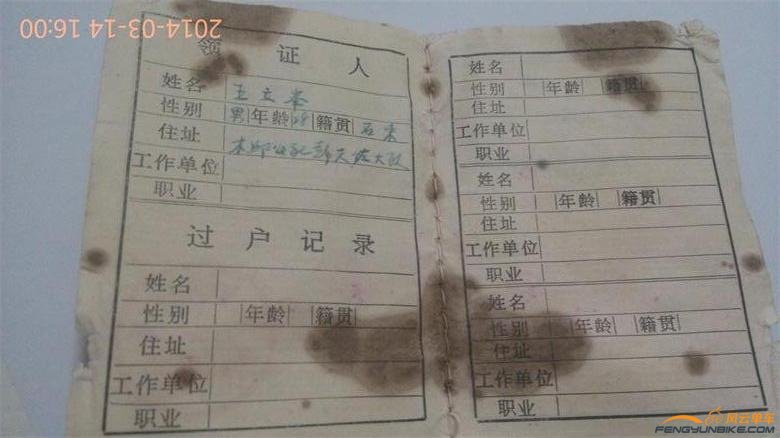 2014-03-14 16:00
领 证 人
姓名 王立峯
性别 男 年龄 28 籍贯
住址
工作单位
职业
过 户 记 录
姓名
性别 年龄 籍贯
住址
工作单位
职业
姓名
性别 年龄 籍贯
住址
工作单位
职业
姓名
性别 年龄 籍贯
住址
工作单位
职业
姓名
性别 年龄 籍贯
住址
工作单位
职业
风云单车
FENGYUNBIKE.COM